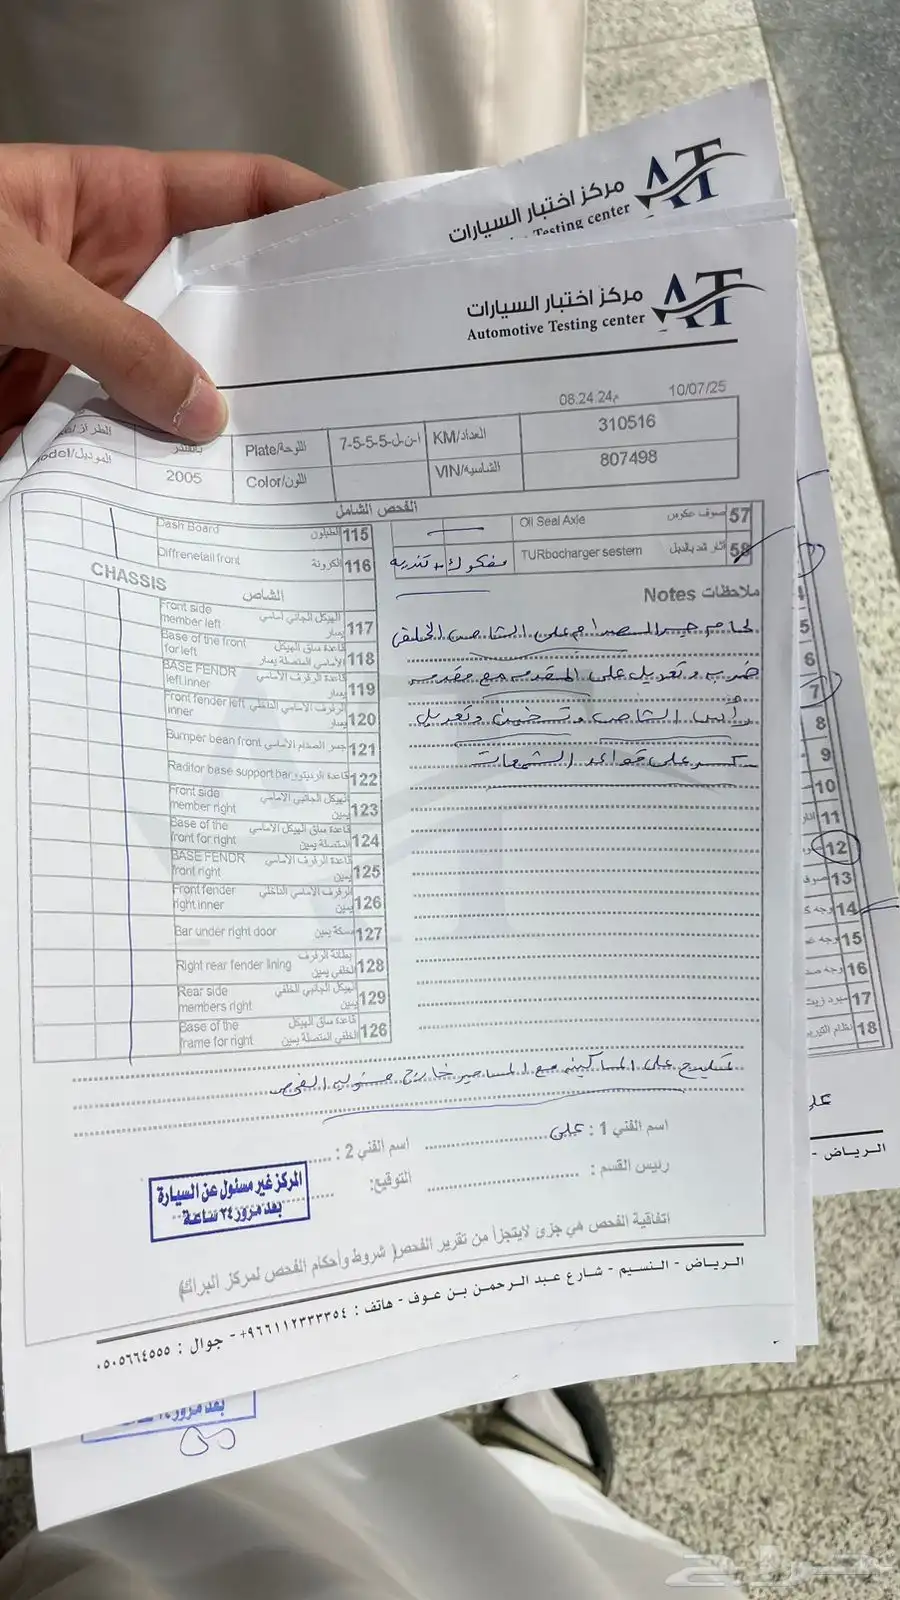 مركز اختبار السيارات
Testing center
مركز اختبار السيارات
Automotive Testing center
08.24.24م 10/07/25
الطراز/
Plate/اللوحة
ا-ن-ل-5-5-5-7
KM/العداد
310516
Model/الموديل
2005
Color/اللون
VIN/الشاسيه
807498
الفحص الشامل
Dash Board الطبلون 115
Diffrenetail front الكرونة 116
CHASSIS الشاص
Front side member left الهيكل الجانبي أمامي يسار 117
Base of the front for left قاعدة ساق الهيكل الأمامي المتصلة يسار 118
BASE FENDR left inner قاعدة الرفرف الأمامي يسار 119
Front fender left inner الرفرف الأمامي الداخلي يسار 120
Bumper bean front جسر الصدام الأمامي 121
Raditor base support bar قاعدة الرديتر 122
Front side member right الهيكل الجانبي الامامي يمين 123
Base of the front for right قاعدة ساق الهيكل الأمامي المتصلة يمين 124
BASE FENDR front right قاعدة الرفرف الأمامي يمين 125
Front fender right inner الرفرف الامامي الداخلي يمين 126
Bar under right door مسكة يمين 127
Right rear fender lining بطانة الرفرف الخلفي يمين 128
Rear side members right الهيكل الجانبي الخلفي يمين 129
Base of the frame for right قاعدة ساق الهيكل الخلفي المتصلة يمين 126
Oil Seal Axle صوف عكوس 57
TURbocharger sestem 58
مفكوك + تندريه
Notes ملاحظات
لحام جسر الصدام على الشاص الخلفي
ضرب وتعديل على المقدمه مع مقدمه
رأس الشاص وتخزين وتعديل
كسر على قواعد الشمعات
تكليج على الماكينه مع المساجير خارج مسئوليه الفحص
اسم الفني 1 : علي
اسم الفني 2 :
رئيس القسم :
التوقيع:
المركز غير مسئول عن السيارة
بعد مرور ٢٤ ساعة
اتفاقية الفحص هي جزى لايتجزأ من تقرير الفحص( شروط وأحكام الفحص لمركز البراك)
الرياض - النسيم - شارع عبد الرحمن بن عوف - هاتف : ٩٦٦١١٢٣٣٣٣٥٤+ - جوال : ٠٥٠٥٦٦٤٥٥٥
5
6
7
8
9
10
11
12
13 صوف
14 وجه
15 وجه
16 وجه
17
18
الرياض -
بعد مرور
حراج